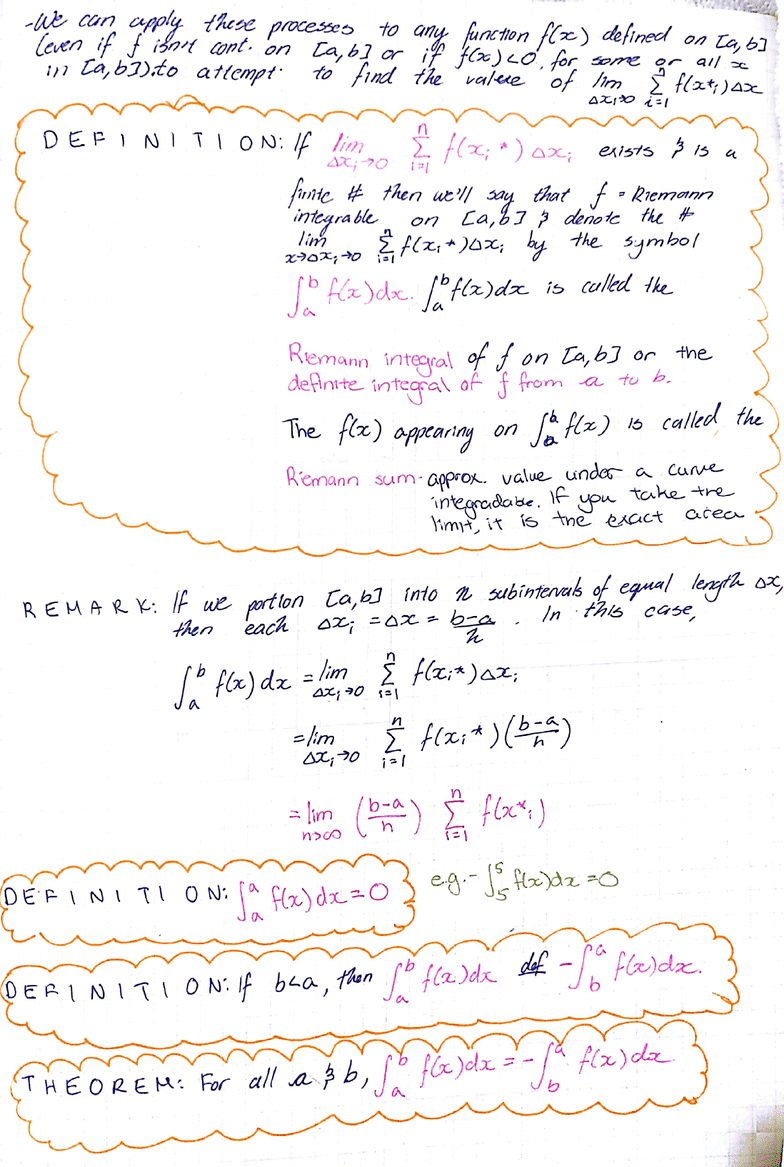 -We can apply these processes to any function f(x) defined on [a,b]
(even if f isn't cont. on [a,b] or if f(x)<0, for some or all x
in [a,b]).to attempt to find the value of lim Δxi→0 Σ i=1 n f(x*i)Δx
DEFINITION: If lim Δxi→0 Σ i=1 n f(xi*)Δxi exists & is a
finite # then we'll say that f = Riemann
integrable on [a,b] & denote the #
lim x→Δxi→0 Σ i=1 n f(xi*)Δxi by the symbol
∫a b f(x)dx. ∫a b f(x)dx is called the
Riemann integral of f on [a,b] or the
definite integral of f from a to b.
The f(x) appearing on ∫a b f(x) is called the
Riemann sum - approx. value under a curve
integradable. If you take the
limit, it is the exact area
REMARK: If we portion [a,b] into n subintervals of equal length Δx,
then each Δxi = Δx = b-a/n . In this case,
∫a b f(x)dx = lim Δxi→0 Σ i=1 n f(xi*)Δxi
= lim Δxi→0 Σ i=1 n f(xi*)(b-a/n)
= lim n→∞ (b-a/n) Σ i=1 n f(x*i)
DEFINITION: ∫a a f(x)dx = 0 e.g. - ∫5 5 f(x)dx = 0
DEFINITION: If b<a, then ∫a b f(x)dx def -∫b a f(x)dx.
THEOREM: For all a & b, ∫a b f(x)dx = -∫b a f(x)dx